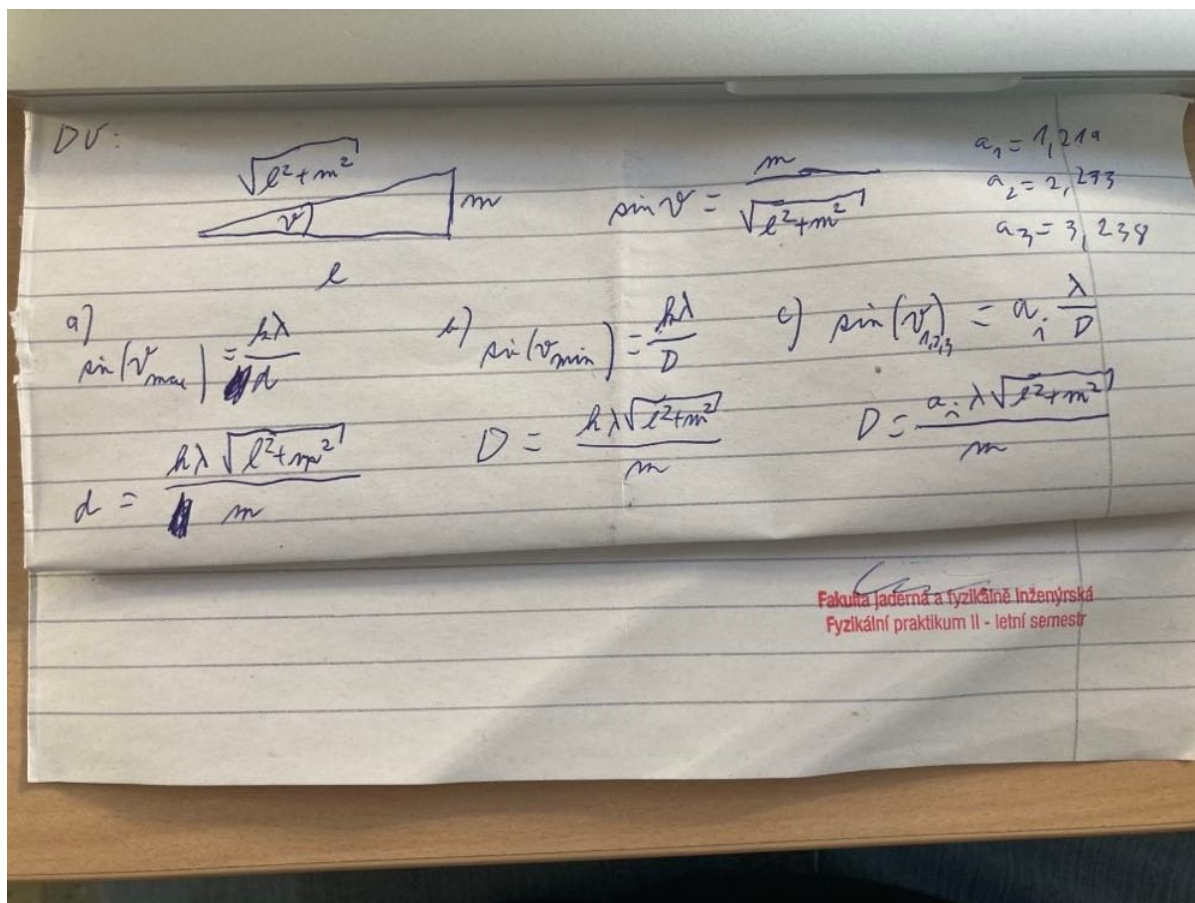 DÚ:
√(l²+m²)
ϑ
m
l
sin ϑ = m / √(l²+m²)
a₁ = 1,219
a₂ = 2,233
a₃ = 3,238
a)
sin(ϑmax) = kλ / d
d = kλ √(l²+m²) / m
b) sin(ϑmin) = kλ / D
D = kλ√(l²+m²) / m
c) sin(ϑ)₁,₂,₃ = aᵢ λ / D
D = aᵢ λ √(l²+m²) / m
Fakulta jaderná a fyzikálně inženýrská
Fyzikální praktikum II - letní semestr